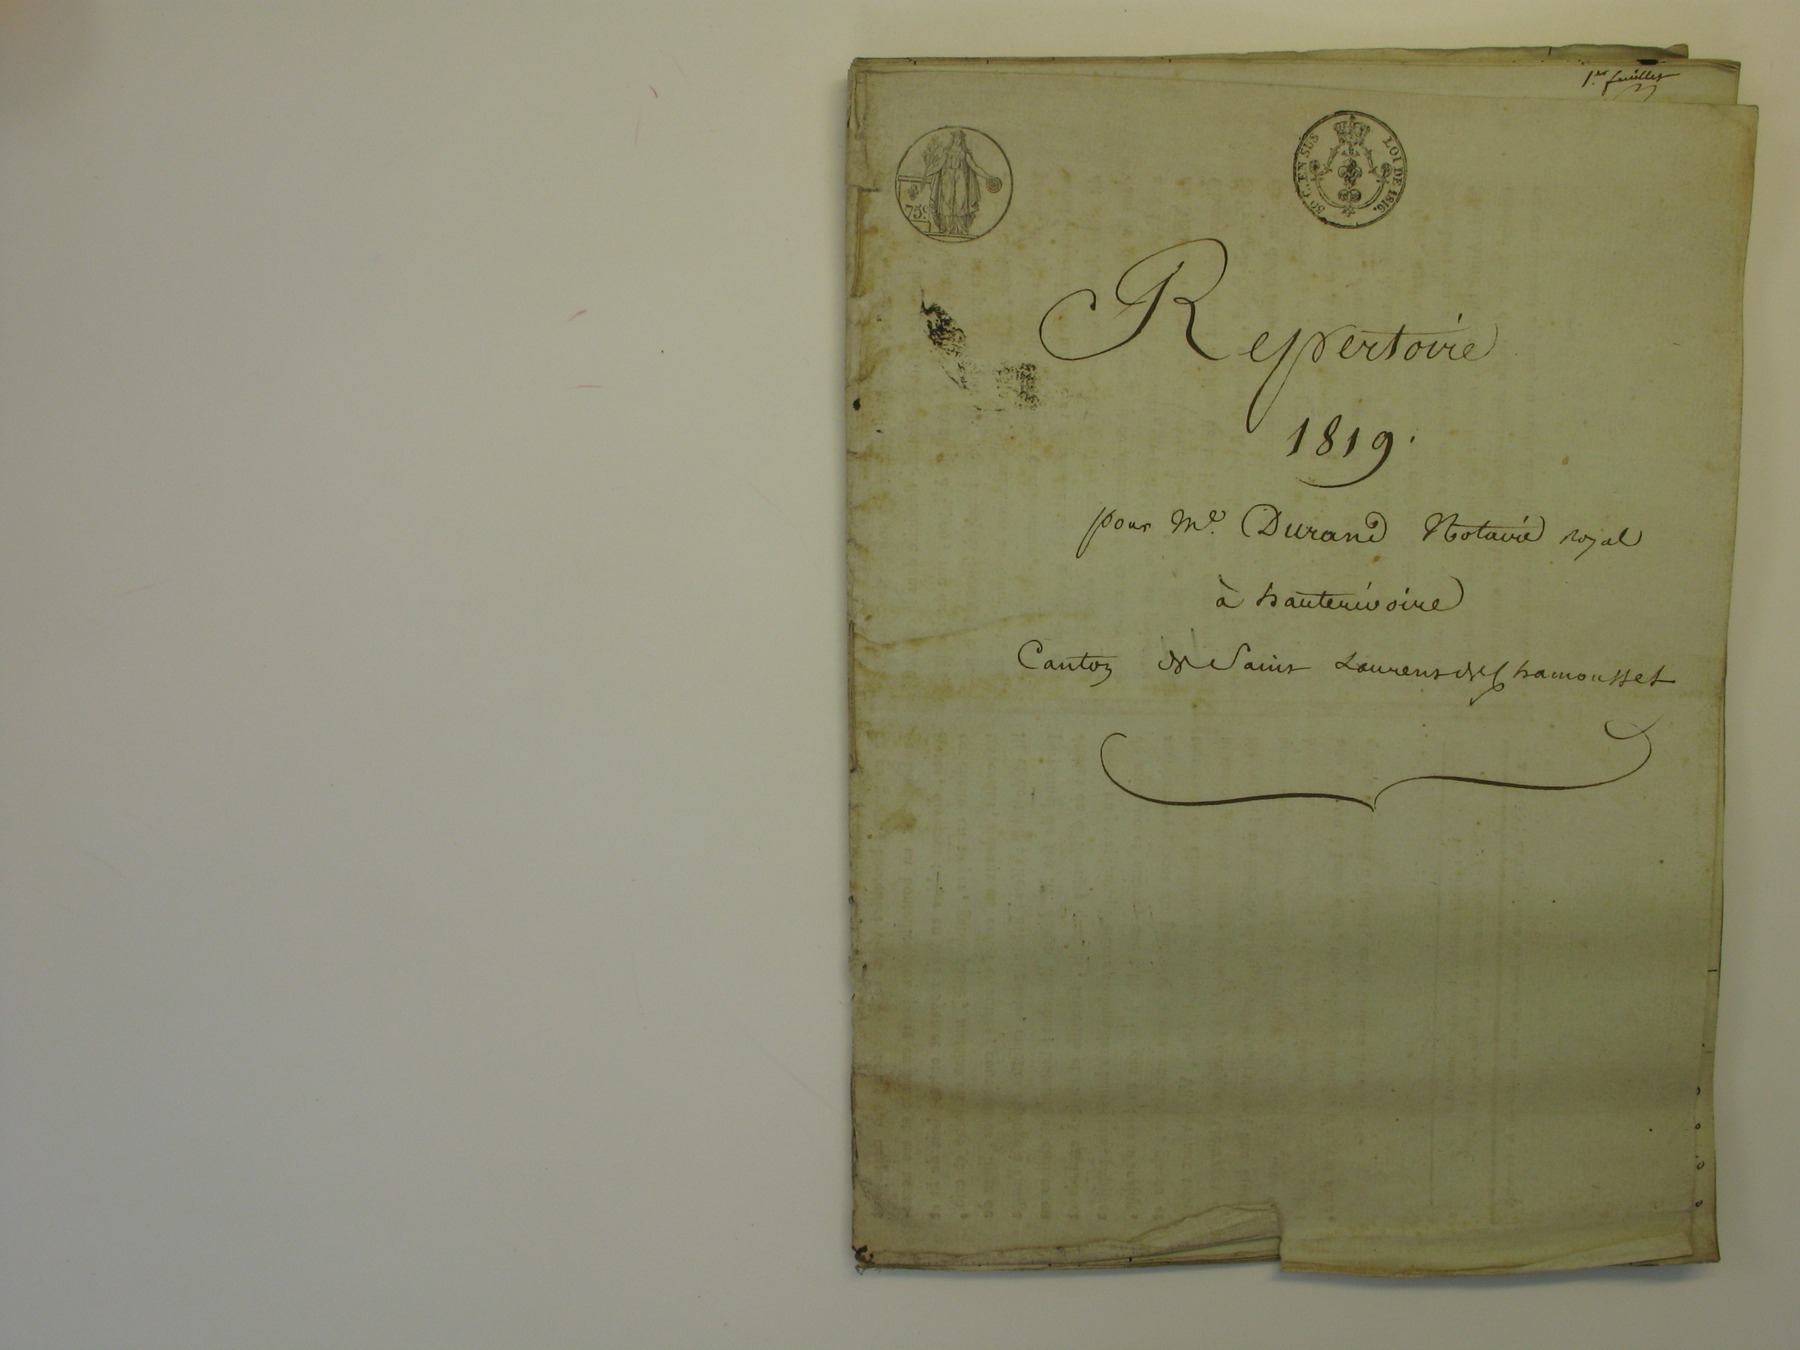 1er feuillet
75c
50 C. EN SUS LOI DE 1816.
Repertoire
1819.
pour Me. Durand Notaire royal
à hauterivoire
Canton de Saint Laurent de Chamousset